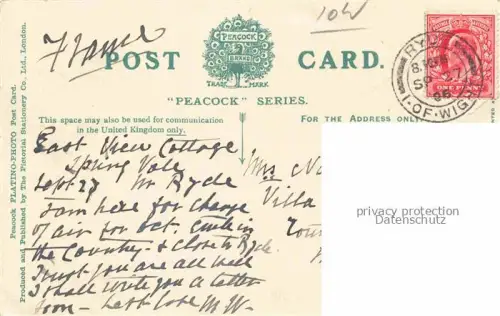 France
10W
POST CARD.
PEACOCK
BRAND
TRADE MARK
"PEACOCK" SERIES.
This space may also be used for communication
in the United Kingdom only.
FOR THE ADDRESS ONLY
Peacock PLATINO-PHOTO Post Card.
Produced and Published by The Pictorial Stationery Co., Ltd., London.
RYDE
SP 27
I. OF WIG
ONE PENNY
East View Cottage
Spring Vale
Sept 27 Nr Ryde
I am here for change
of air for Oct. Quite in
the Country & close to Ryde.
I trust you are all well
I shall write you a letter
soon - Best love M W.
Mrs
Villa
privacy protection
Datenschutz